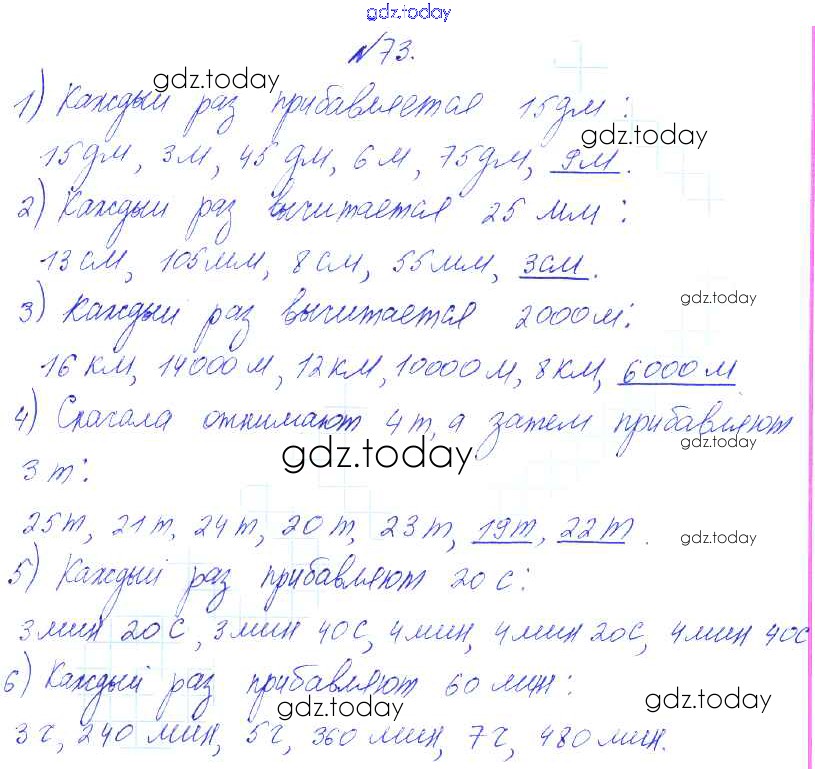 gdz.today
№73.
gdz.today
1) Каждый раз прибавляется 15дм:
gdz.today
15дм, 3м, 45дм, 6м, 75дм, 9м.
2) Каждый раз вычитается 25 мм:
13см, 105мм, 8см, 55мм, 3см.
gdz.today
3) Каждый раз вычитается 2000м:
16 км, 14000м, 12км, 10000м, 8км, 6000м
4) Сначала отнимают 4т, а затем прибавляют
gdz.today
gdz.today
3т:
25т, 21т, 24т, 20т, 23т, 19т, 22т.
gdz.today
5) Каждый раз прибавляют 20с:
3мин 20с, 3мин 40с, 4мин, 4мин 20с, 4мин 40с
6) Каждый раз прибавляют 60 мин:
gdz.today
gdz.today
3ч, 240 мин, 5ч, 360мин, 7ч, 480мин.